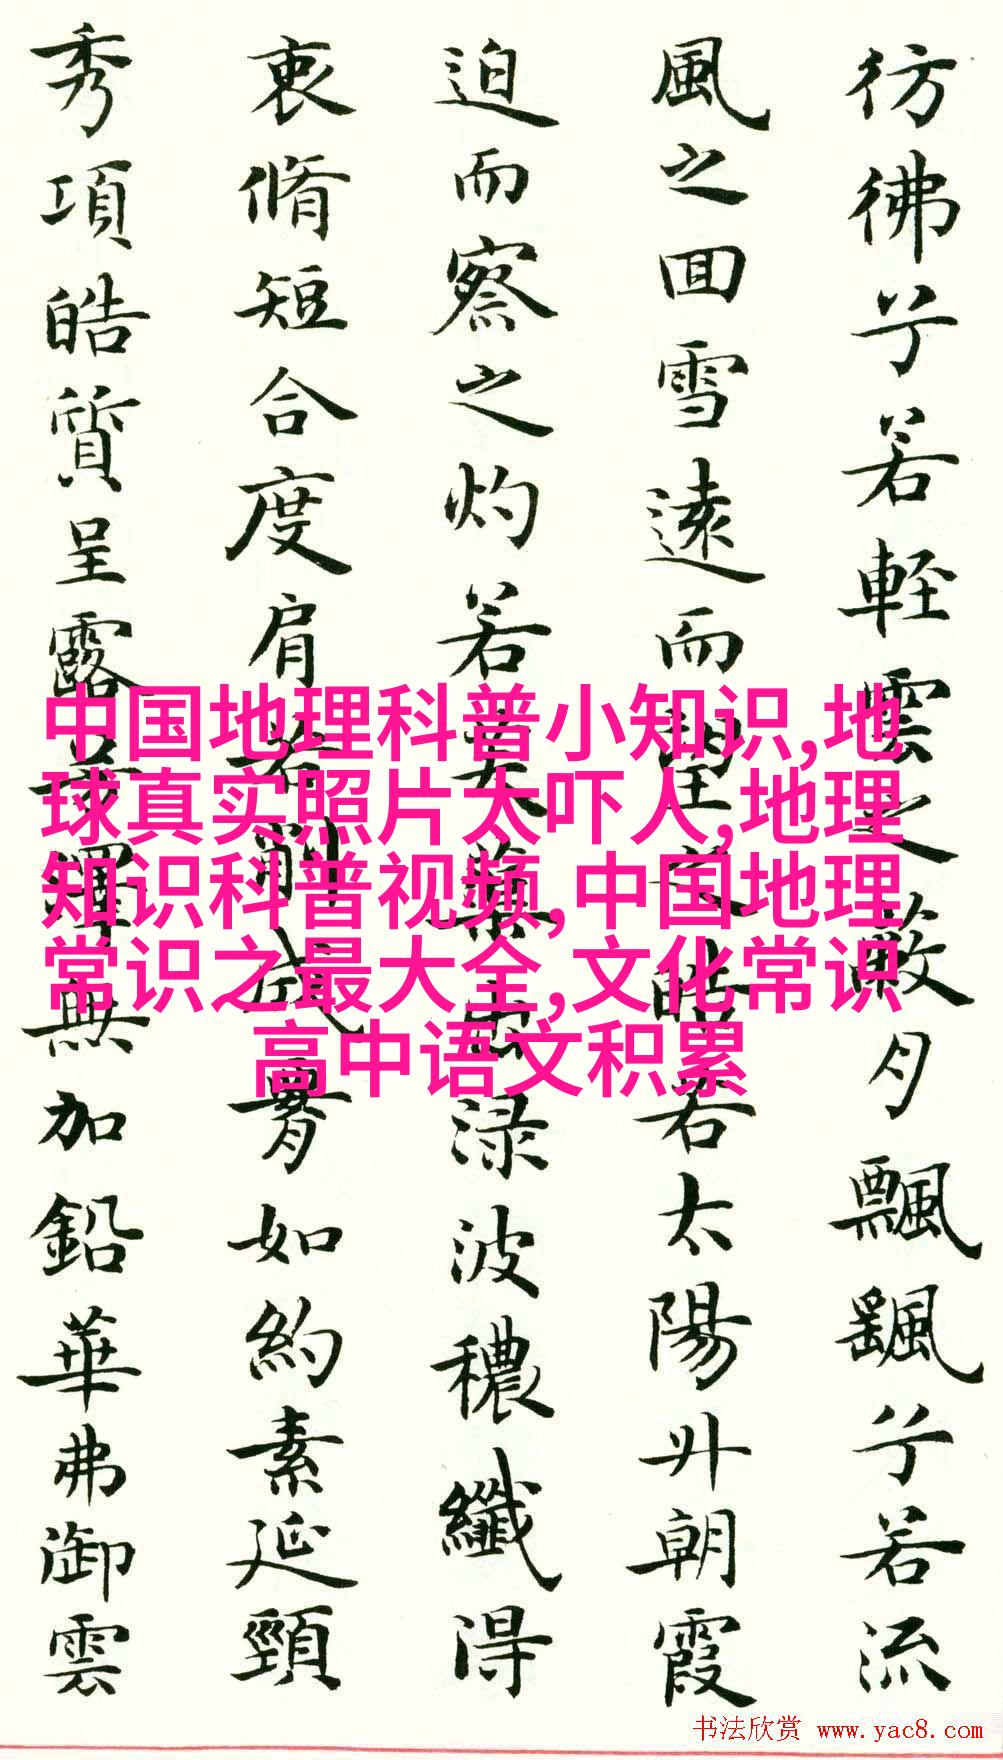 彷彿兮若軽雲之蔽月飄颻兮若流
風之囬雪遠而望之皎若太陽升朝霞
迫而察之灼若芙蕖出渌波穠纖得
衷脩短合度肩若削成如約素延頸
秀項皓質呈露芳澤無加鉛華弗御雲
中国地理科普小知识,地
球真实照片太吓人,地理
知识科普视频,中国地理
常识之最大全,文化常识
高中语文积累
书法欣赏 www.yac8.com